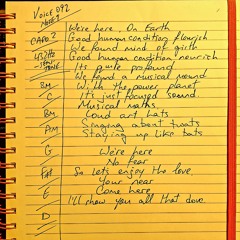 Voice 092
We're here On Earth
Good human condition flourish
CAPO 2
We found mind of
Good human condition nourish
It's quite profound
We found a musical sound
Bm With the power planet
C It's just focused sound
Musical maths,
Bm Loud art bats
Am Singing about
Staying up like bats
G We're here
No fear
F# So lets enjoy the love
Your near
E Come here
I'll show you all that dove
D